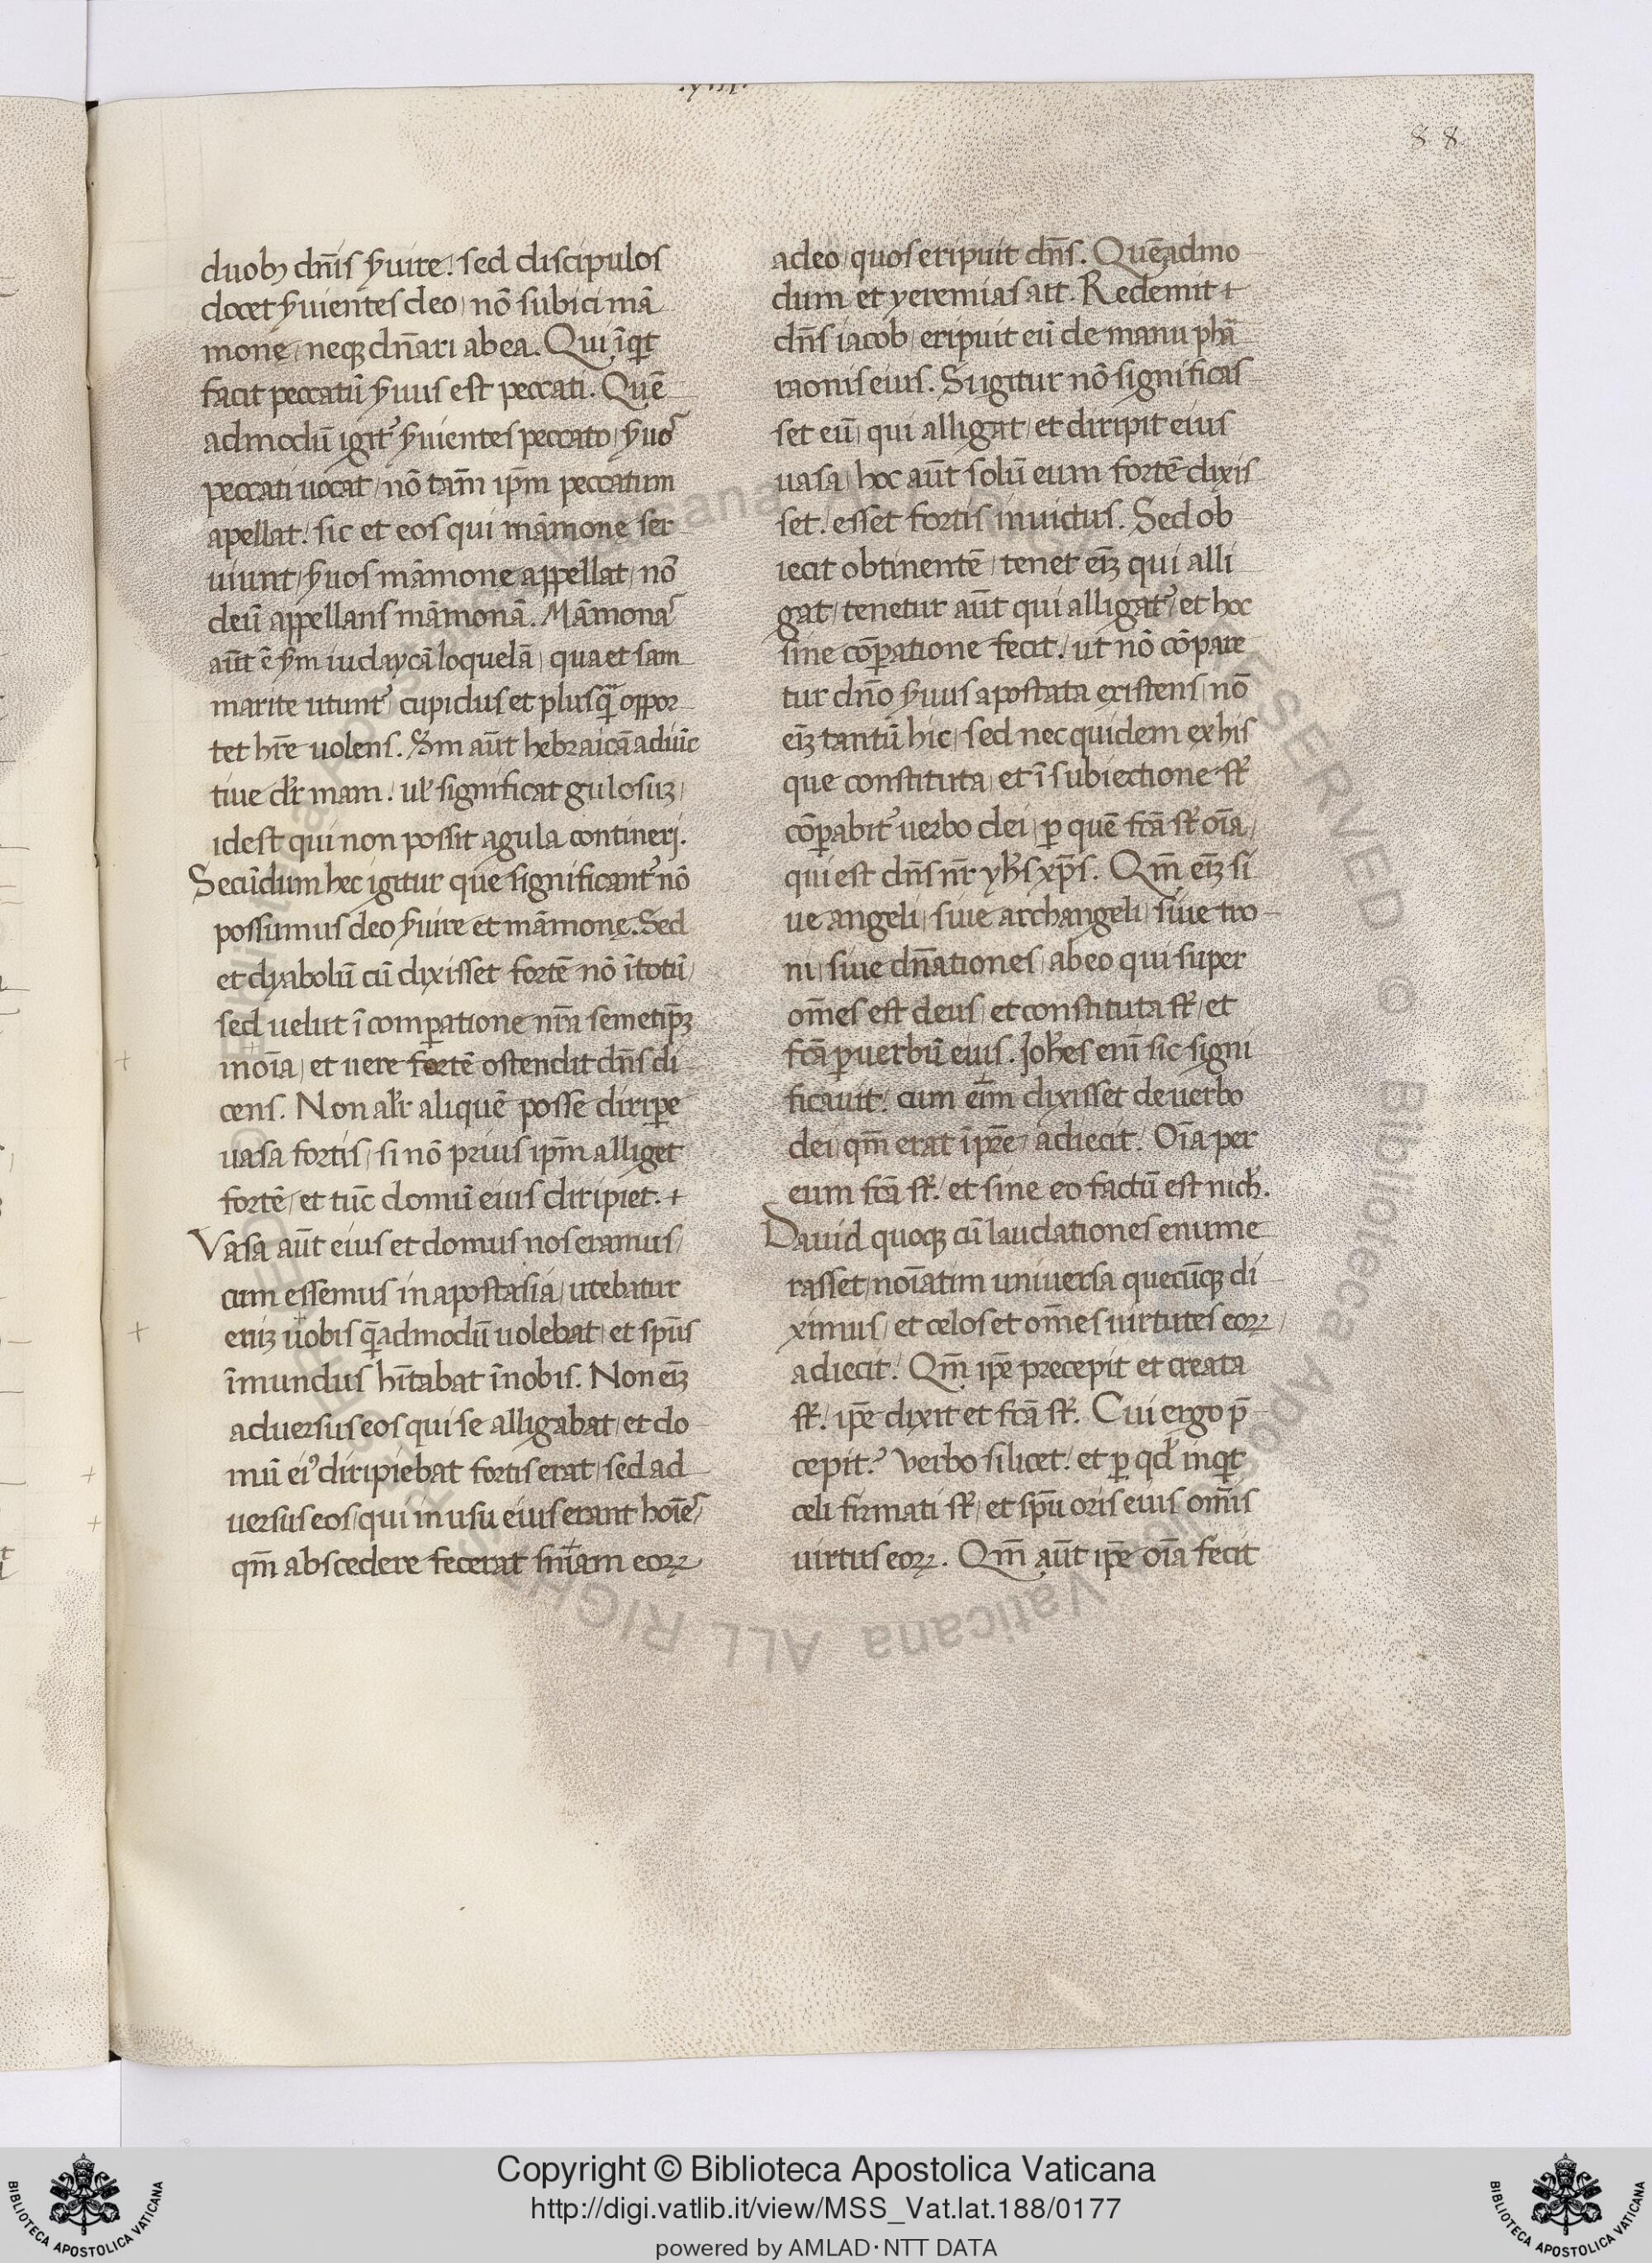 .xiii.
88
duobꝫ dn̄is s̄uire. sed discipulos
docet s̄uientes deo, nō subici mā
monę, neqꝫ dn̄ari ab ea. Qui īqͥt
facit peccatū s̄uus est peccati. Quē
admodū igit᷑ s̄uientes peccato, s̄uoſ
peccati uocat, nō tam̄ ip̄m peccatum
apellat. sic et eos qui māmonę ser
uiunt, s̄uos māmone appellat, nō
deū appellans māmonā. Māmonaſ
aūt ē s̄m iudaycā loquelā, qua et sam
marite utunt᷑ cupidus et plusqᷓ oppor
tet hr̄e uolens. Sm̄ aūt hebraicā adiūc
tiue dr̄ mam. ul̄ significat gulosuꝫ,
id est qui non possit a gula contineri.
Secūdum hec igitur que significant᷑ nō
possumus deo s̄uire et māmonę. Sed
et dyabolū cū dixisset fortē nō ī totū,
sed uelut ī comꝑatione nr̄a semetip̄ꝫ
in oīa, et uere fortē ostendit dn̄s di
cens. Non al̄r aliquē posse diriꝑe
uasa fortis, si nō prius ip̄m alliget
fortē, et tūc domū eius diripiet. +
Vasa aūt eius et domus nos eramus,
cum essemus in apostasia, utebatur
eniꝫ uobis qͣ̄admodū uolebat, et sp̄us
īmundus hītabat ī nobis. Non eiꝫ
aduersus eos qui se alligabat, et do
mū ei᷒ diripiebat fortis erat, sed ad
uersus eos, qui in usu eius erant hoīeſ
qm̄ abscedere fecerat sniam eoꝝ
a deo, quos eripuit dn̄s. Quēadmo
dum et yeremias ait. Redemit +
dn̄s iacob, eripuit eū de manu pha
raonis eius. Si igitur nō significas
set eū, qui alligat, et diripit eius
uasa, hoc aūt solū eum fortē dixis
set. esset fortis inuictus. Sed ob
iecit obtinentē, tenet eiꝫ qui alli
gat, tenetur aūt qui alligat᷑, et hoc
sine cōꝑatione fecit. ut nō cōpare
tur dn̄o s̄uus apostata existens, nō
eiꝫ tantū hic, sed nec quidem ex his
que constituta, et ī subiectione st᷑
cōꝑabit᷑ uerbo dei, ꝑ quē fc̄a st᷑ oīa,
qui est dn̄s nr̄ yh̄s xp̄s. Qm̄ eiꝫ si
ue angeli, siue archangeli, siue tro
ni, siue dn̄ationes, ab eo qui super
om̄es est deus, et constituta st᷑, et
fc̄a ꝑ uerbū eius. Joh̄es enī sic signi
ficauit. cum eīm dixisset de uerbo
dei, qm̄ erat ī pr̄e, adiecit. Oīa per
eum fc̄a st᷑. et sine eo factū est nich̄.
Dauid quoqꝫ cū laudationes enume
rasset, noīatim uniuersa quecūqꝫ di
ximus, et celos et om̄es uirtutes eoꝝ,
adiecit. Qm̄ ip̄e precepit et creata
st᷑. ip̄e dixit et fc̄a st᷑. Cui ergo p̄
cepit? Verbo silicet. et ꝑ qd̄ inqͥt
celi firmati st᷑, et sp̄u oris eius om̄is
uirtus eoꝝ. Qm̄ aūt ip̄e oīa fecit
Copyright © Biblioteca Apostolica Vaticana
http://digi.vatlib.it/view/MSS_Vat.lat.188/0177
powered by AMLAD·NTT DATA